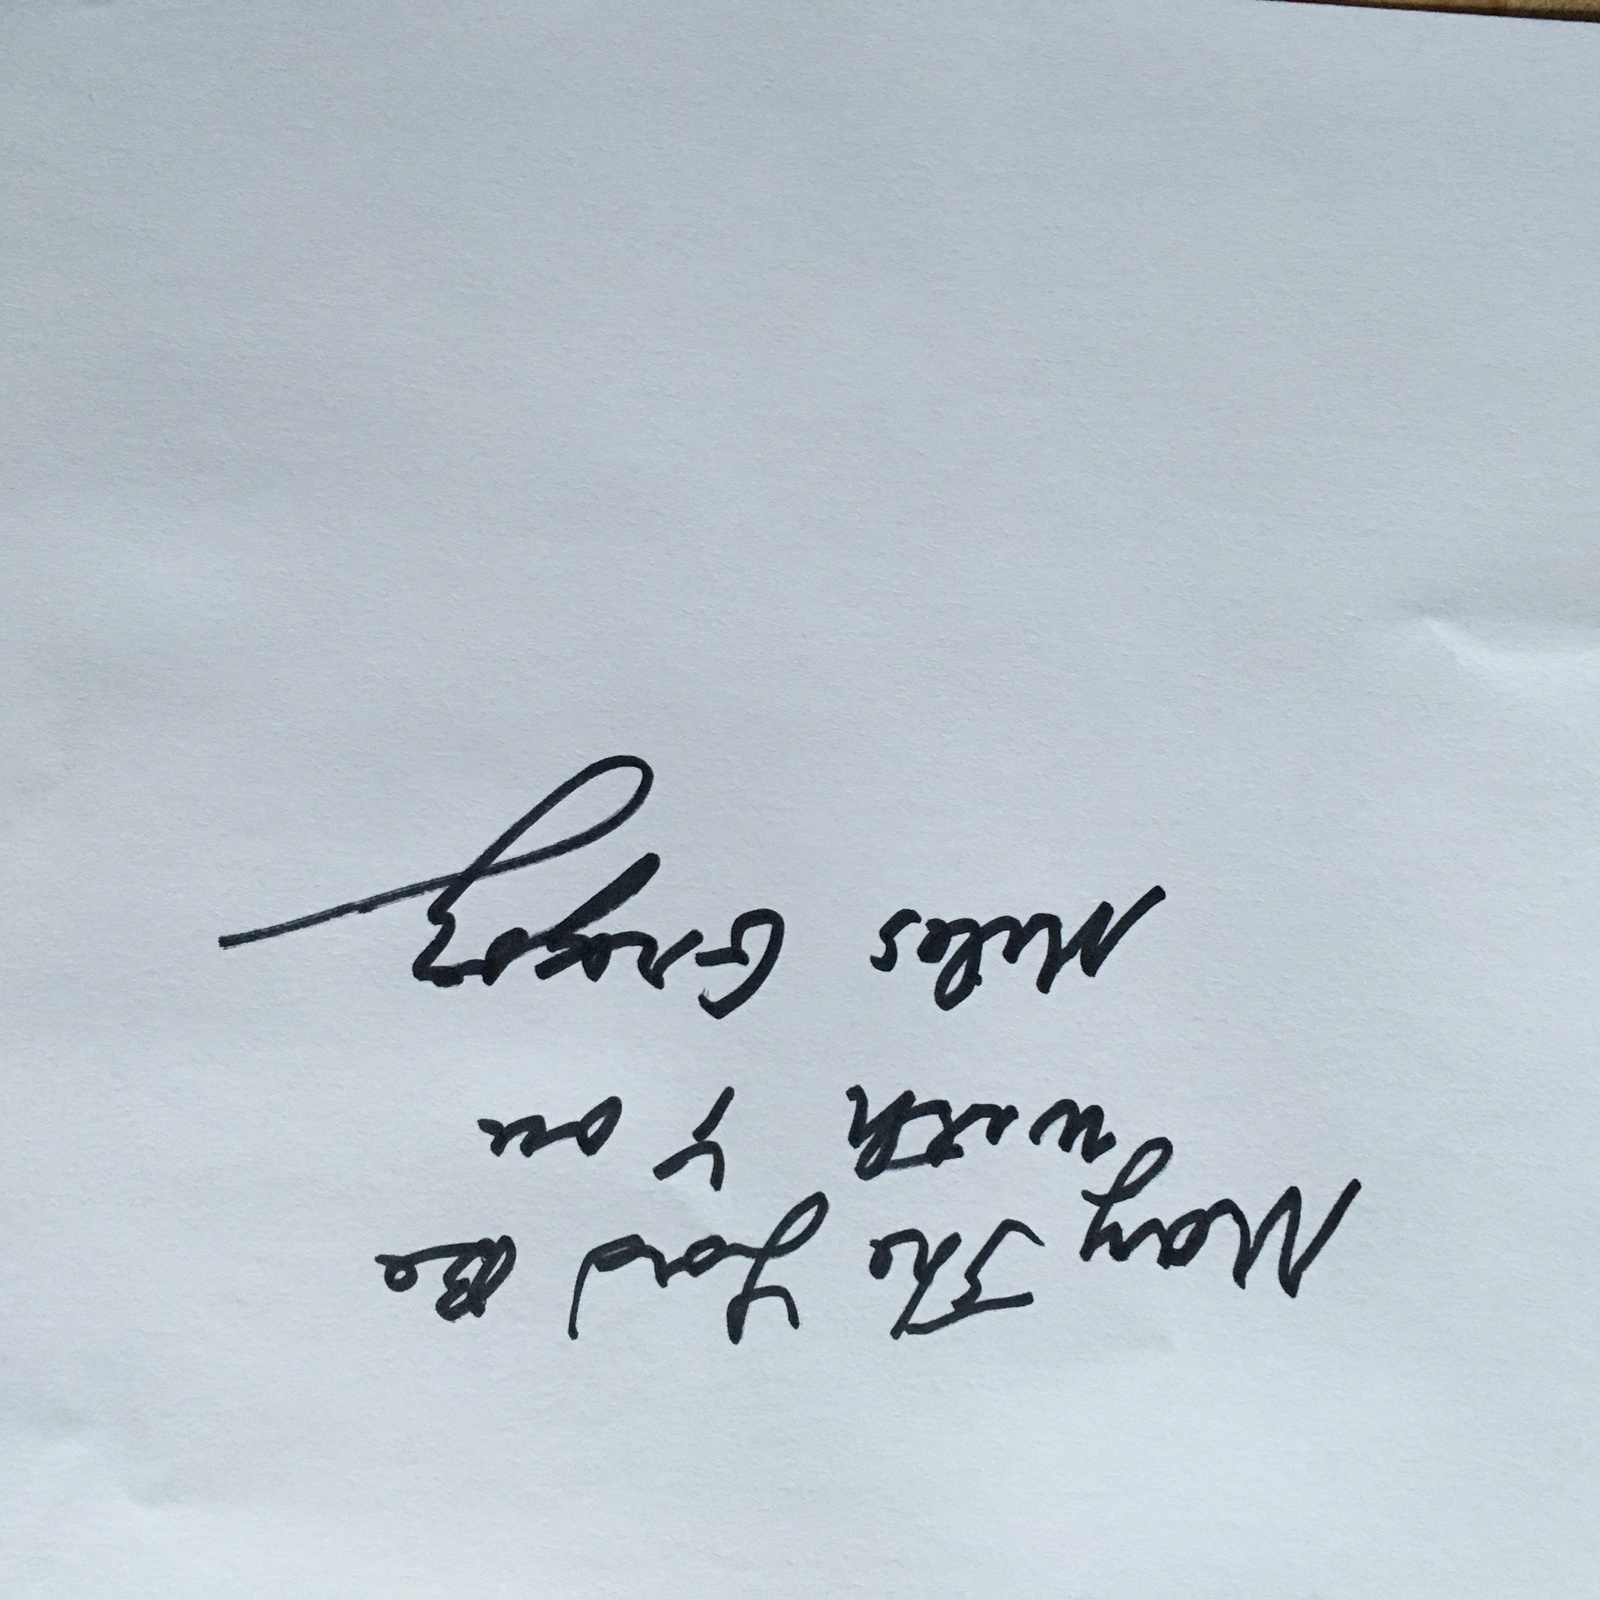 May The Lord Be
with You
Miles Gregory